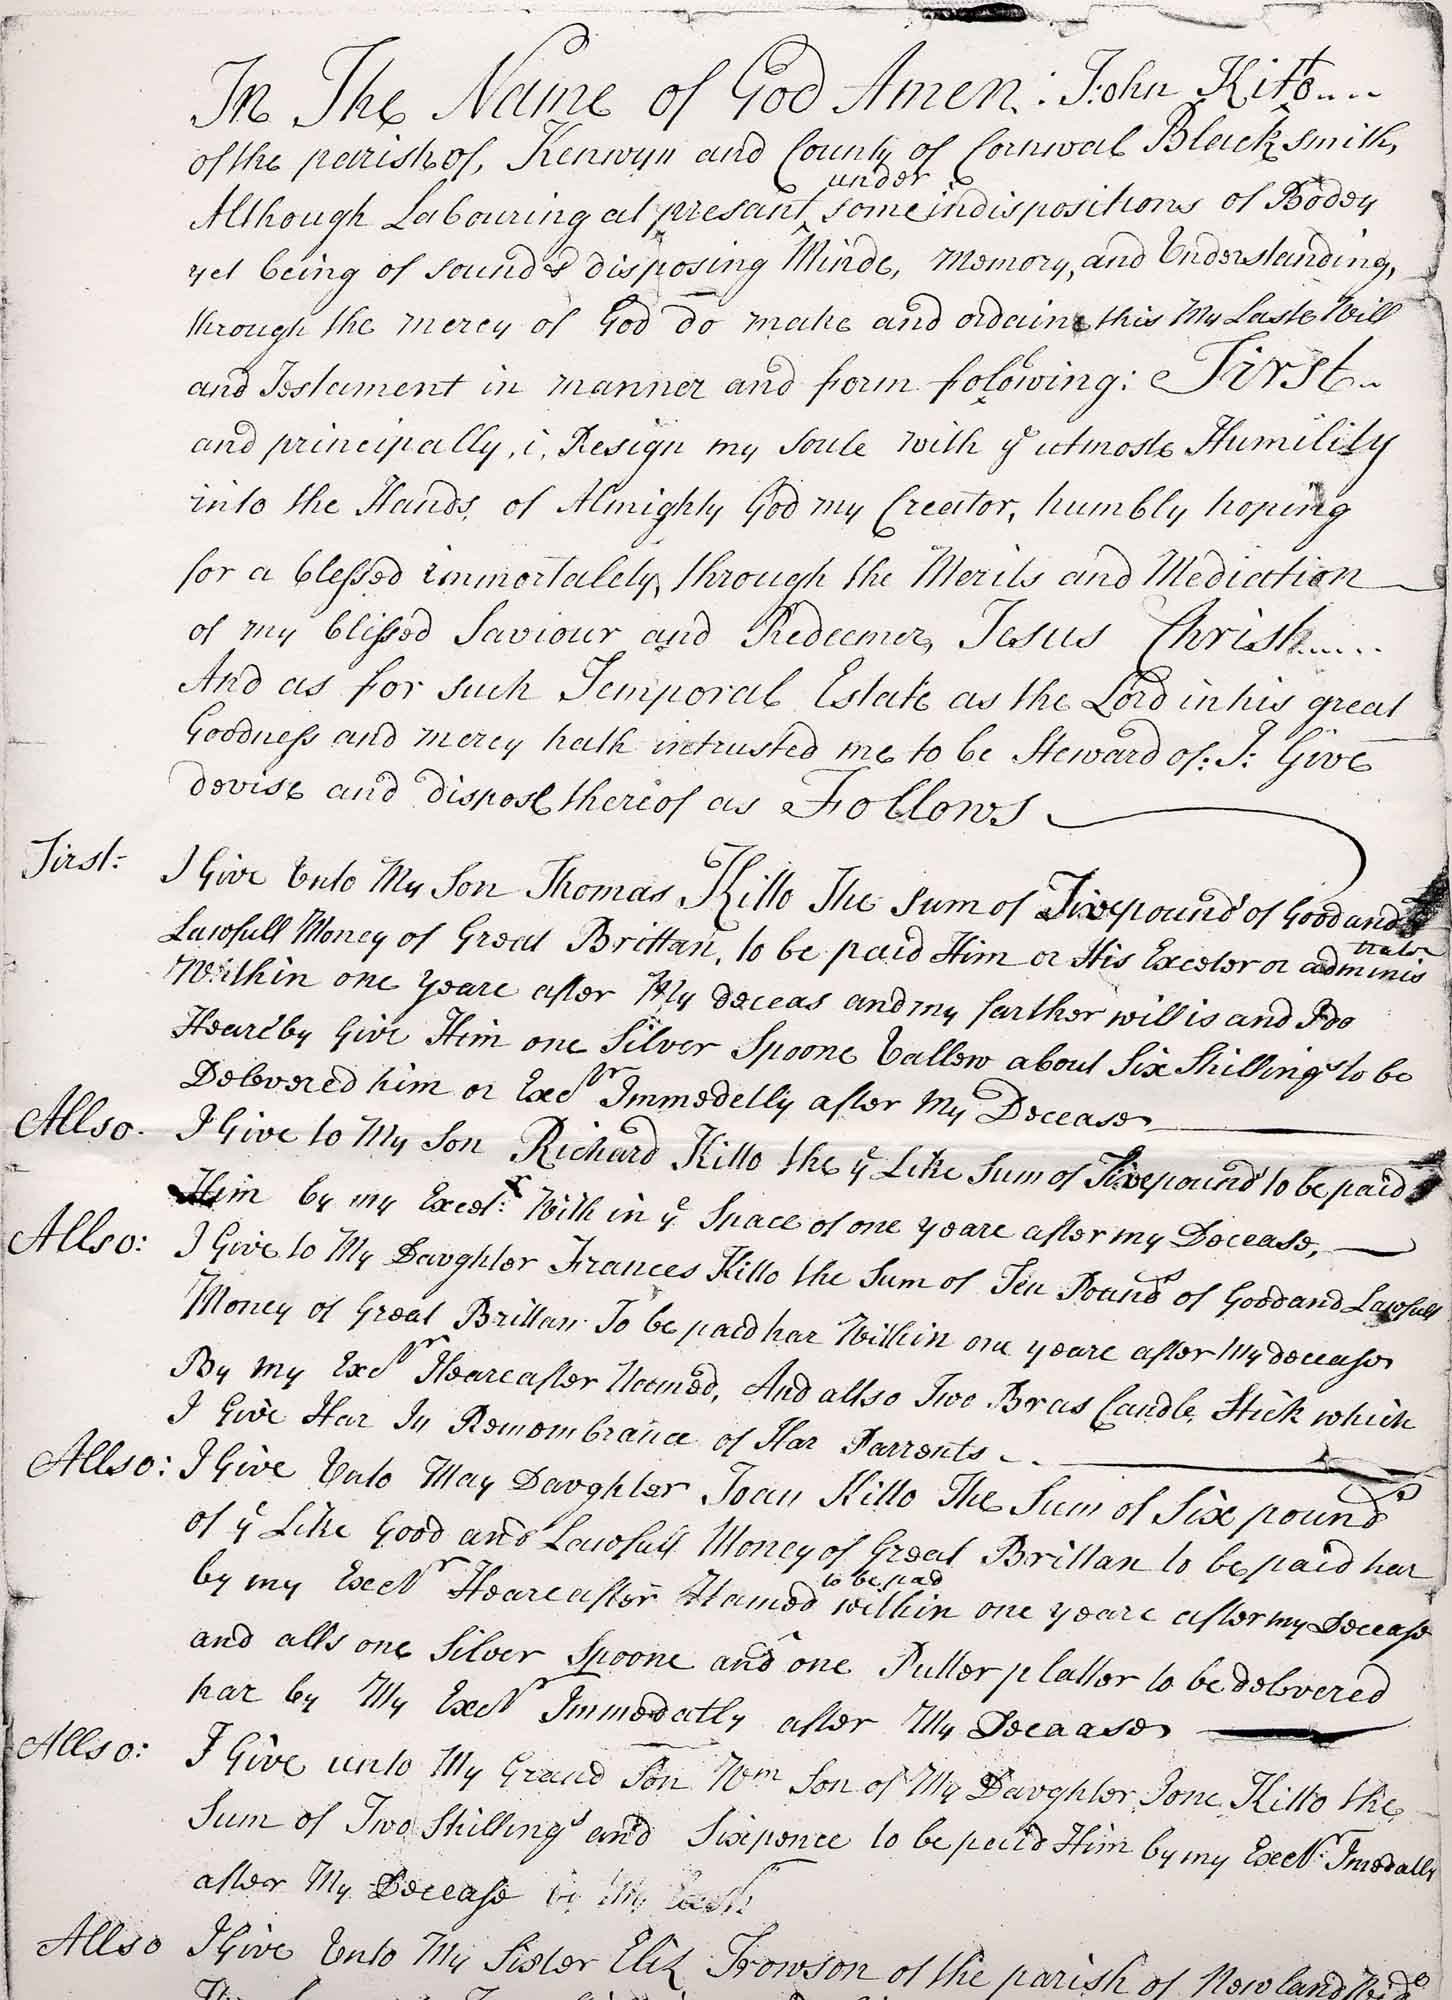 In The Name of God Amen: I: John Kitto....
of the parish of, Kenwyn and County of Cornwal Blacksmith,
Although Labouring at presant under some indispositions of Bodey
yet being of sound & disposing Minde, Memory, and Understanding,
through the mercy of God do make and ordaine this My Laste Will
and Testament in manner and form folowing: First..
and principally, i, Resign my Soule with ye utmoste Humility
into the Hands of Almighty God my Creator, humbly hoping
for a blessed immortalety, through the Merits and Mediation
of my blessed Saviour and Redeemer, Jesus Christ.....
And as for such Temporal Estate as the Lord in his great
Goodness and mercy hath intrusted me to be Steward of: I: Give
devise and dispose thereof as Follows
First: I Give Unto My Son Thomas Kitto The Sum of Five pounds of Good and
Lawfull Money of Great Brittan, to be paid Him or His Exceter or administrator
Within one yeare after My deceas and my farther will is and I do
Heareby Give Him one Silver Spoone Vallew about Six Shillings to be
Delevered him or Excetr Immedetly after My Decease
Allso. I Give to My Son Richard Kitto the ye Like Sum of Five pounds to be paid
Him by my Excetr With in ye Space of one yeare after my Decease,
Allso: I Give to My Daughter Frances Kitto the Sum of Ten Pounds of Good and Lawfull
Money of Great Brittan To be paid har Within one yeare after My decease
By my Excetr Heareafter Naemed, And allso Two Bras Candle Stick which
I Give Har In Remembrance of Har Parrents
Allso: I Give Unto May Daughter Joan Kitto The Sum of Six pounds
of ye Like Good and Lawfull Money of Great Brittan to be paid har
by my Excetr Heareafter Named to be pad within one yeare after my Decease
and alls one Silver Spoone and one Putter platter to be delevered
har by My Excetr Immedatly after My Decaase
Allso: I Give unto My Grand Son Wm Son of My Daughter Jone Kitto the
Sum of Two Shillings and Sixpence to be paid Him by my Excetr Imedatly
after My Decease
Allso I Give Unto My Sister Eliz Trowson of the parish of Newland